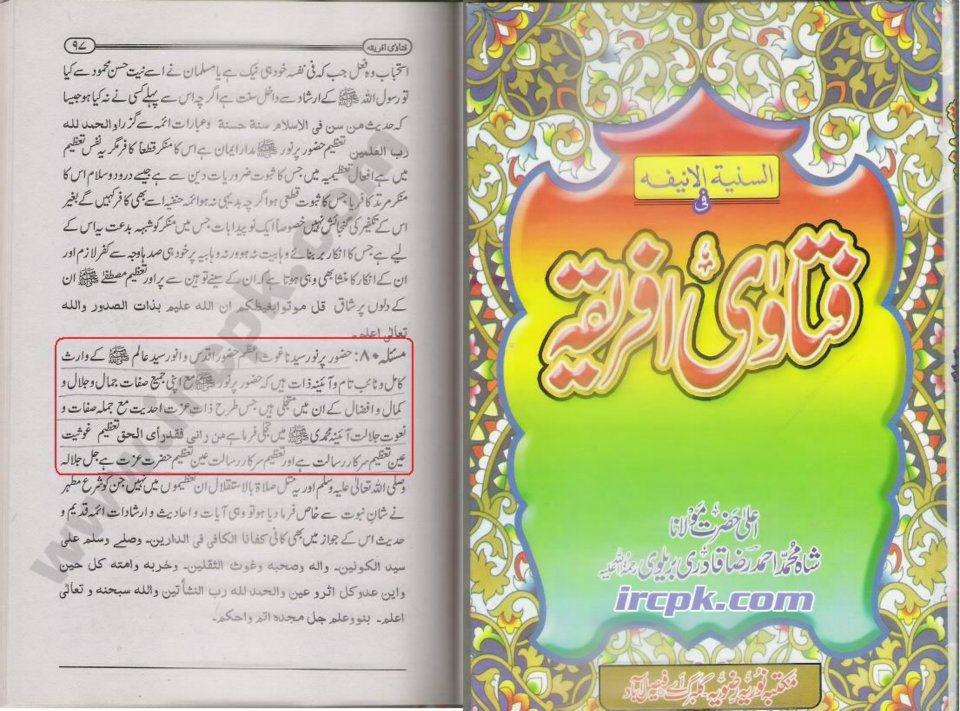 ۹۷ فتاوٰی افریقہ
استحباب وہ فعل جب کہ فی نفسہ خود ہی نیک ہے یا مسلمان نے اسے نیت حسن محمود سے کیا
تو رسول اللہ ﷺ کے ارشاد سے داخل سنت ہے اگرچہ اس سے پہلے کسی نے نہ کیا ہو جیسا
کہ حدیث من سن فی الاسلام سنة حسنة وعبارات ائمہ سے گزرا والحمد لله
رب العلمین تعظیم حضور پرنور ﷺ مدار ایمان ہے اس کا منکر قطعاً کافر مگر یہ نفس تعظیم
میں ہے افعال تعظیمیہ میں جس کا ثبوت ضروریات دین سے ہے جیسے درود و سلام اس کا
منکر مرتد کافر یا جس کا ثبوت قطعی ہو اگرچہ بدیہی نہ ہو ائمہ حنفیہ اسے بھی کافر کہیں گے بغیر
اس کے تکفیر کی گنجائش نہیں خصوصاً ایک نو پیدا بات جس میں منکر کو شبہہ بدعت یہ اس کے
لیے ہے جس کا انکار بر بنائے وہابیت نہ ہو ورنہ وہابیہ پر خود ہی صدہا وجہ سے کفر لازم اور
ان کے انکار کا منشا بھی وہی ہوتا ہے کہ ان کے سینے توہین سے پر اور تعظیم مصطفٰے ﷺ ان
کے دلوں پر شاق قل موتوا بغیظکم ان الله علیم بذات الصدور والله
تعالٰی اعلم۔
مسئلہ ۸۰: حضور پرنور سیدنا غوث اعظم حضور اقدس و انور سید عالم ﷺ کے وارث
کامل و نائب تام و آئینہ ذات ہیں کہ حضور پرنور ﷺ مع اپنی جمیع صفات جمال و جلال و
کمال و افضال کے ان میں متجلی ہیں جس طرح ذات عزت احدیت مع جملہ صفات و
نعوت جلالت آئینہ محمدی ﷺ میں تجلی فرما ہے من رانی فقد رأی الحق تعظیم غوثیت
عین تعظیم سرکار رسالت ہے اور تعظیم سرکار رسالت عین تعظیم حضرت عزت ہے جل جلالہ
وصلی اللہ تعالٰی علیہ وسلم اور یہ مثل صلاۃ بالاستقلال ان تعظیموں میں نہیں جن کو شرع مطہر
نے شان نبوت سے خاص فرما دیا ہو تو وہی آیات و احادیث و ارشادات ائمہ قدیم و
حدیث اس کے جواز میں بھی کافی کفانا الکافی فی الدارین۔ وصلے وسلم علی
سید الکونین۔ واله وصحبه وغوث الثقلین۔ وخربه وامته کل حین
واین عدد کل اثر و عین والحمد لله رب النشأتین والله سبحنه وتعالٰی
اعلم۔ بنو وعلم جل مجده اتم واحکم۔
السنیة الانیفه
فی
فتاوٰی افریقہ
اعلٰی حضرت مولانا
شاہ محمد احمد رضا قادری بریلوی رحمۃ اللہ علیہ
ircpk.com
مکتبہ نوریہ رضویہ گلبرگ اے فیصل آباد